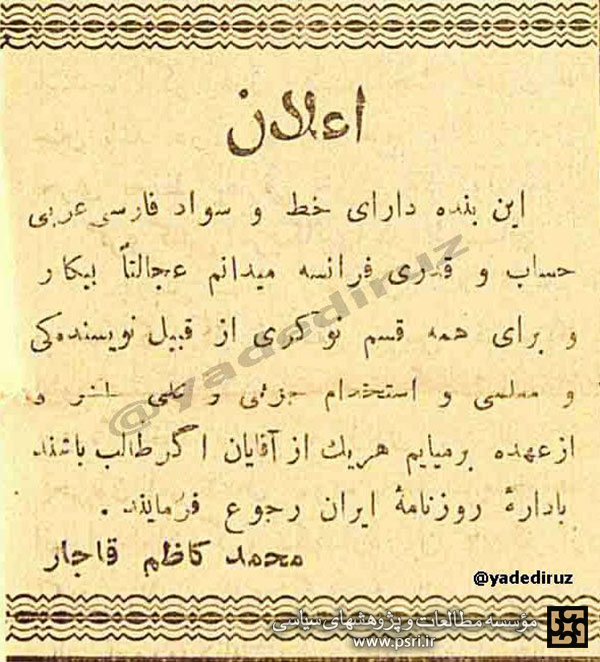 اعلان
این بنده دارای خط و سواد فارسی عربی
حساب و قدری فرانسه میدانم عجالتاً بیکار
و برای همه قسم نوکری از قبیل نویسنده‌کی
و معلمی و استخدام جزئی و کلی حاضر و
ازعهده برمیایم هریك از آقایان اگر طالب باشند
بادارهٔ روزنامهٔ ایران رجوع فرمایند .
محمد کاظم قاجار
@yadediruz
@yadediruz
مؤسسه مطالعات و پژوهشهای سیاسی
www.psri.ir